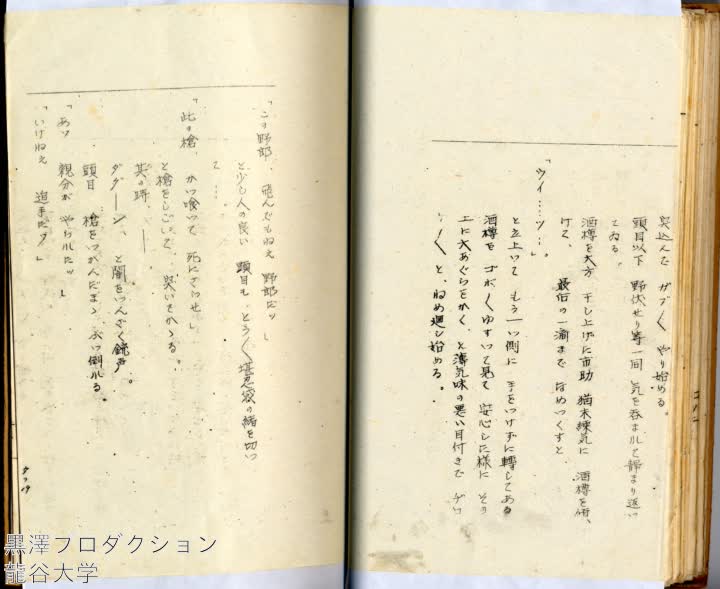 突込んで ガブ〱 やり始める。
頭目以下 野伏せり等一同 気を呑まれて静まり返つ
てゐる。
酒樽を大方 干し上げた市助 猶未練気に 酒樽を傾
けて、 最后の一滴まで なめつくすと
「ウイ……ツ…。」
と立上つて もう一つ側に 手をつけずに轉してある
酒樽を ゴボ〱ゆすつて見て 安心した様に その
上に大あぐらをかくと 薄気味の悪い目付きで ヂロ
〱と、ねめ廻し始める。
「この野郎、飛んでもねえ 野郎だッ」
と少し人の良い 頭目も、とう〱堪忍袋の緒を切つ
て…
「此の槍、かつ喰つて 死にさらせ」
と槍をしごいて、突いてかゝる。
其の時、——
ダダーン、と闇をつんざく銃声。
頭目 槍をつかんだまゝ ぶつ倒れる。
「あッ 親分が やられたッ」
「いけねえ 追手だァ」
黒澤プロダクション
龍谷大学